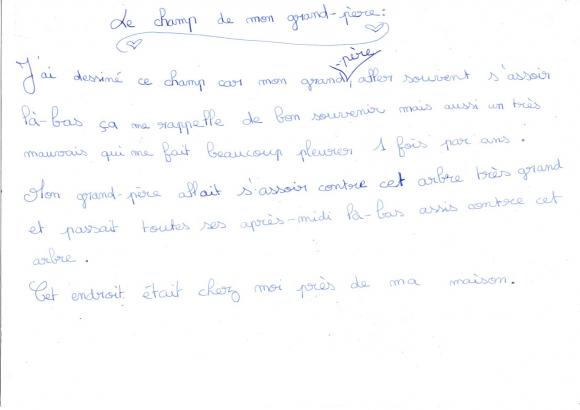 Le champ de mon grand-père :
J'ai dessiné ce champ car mon grand-père, aller souvent s'assoir
là-bas ça me rappelle de bon souvenir mais aussi un très
mauvais qui me fait beaucoup pleurer 1 fois par ans.
Mon grand-père allait s'assoir contre cet arbre très grand
et passait toutes ses après-midi là-bas assis contre cet
arbre.
Cet endroit était chez moi près de ma maison.